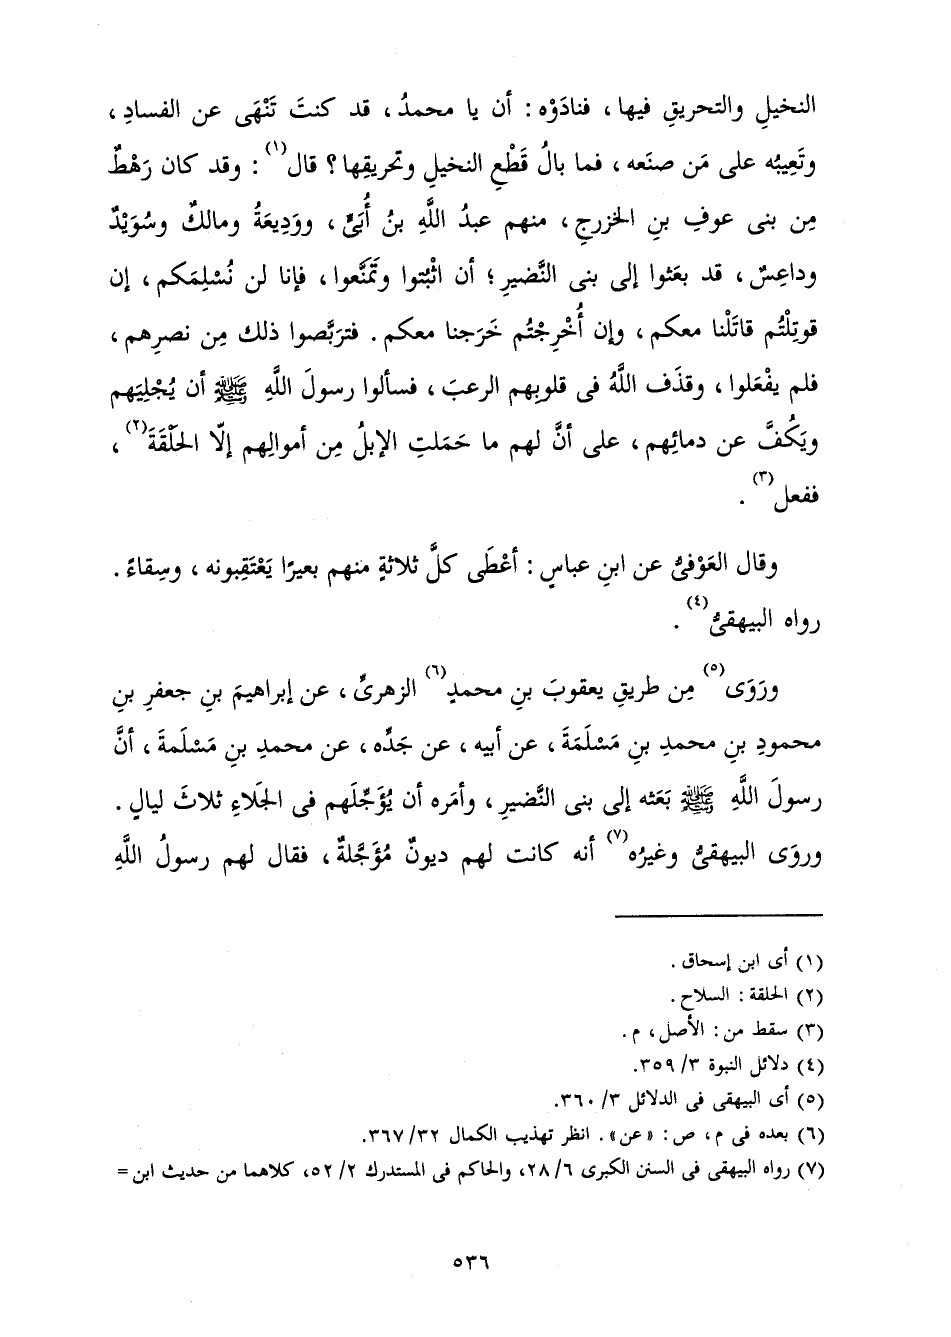 النخيلِ والتحريقِ فيها ، فنادَوْه : أن يا محمدُ ، قد كنتَ تَنْهَى عن الفسادِ ،
وتَعِيبُه على مَن صنَعه ، فما بالُ قَطْعِ النخيلِ وتحريقِها ؟ قال(١) : وقد كان رَهْطٌ
مِن بنى عوفِ بنِ الخزرجِ ، منهم عبدُ اللَّهِ بنُ أُبَىٍّ ، ووَدِيعَةُ ومالكٌ وسُوَيْدٌ
وداعِسٌ ، قد بعَثوا إلى بنى النَّضيرِ ؛ أن اثْبُتوا وتَمَنَّعوا ، فإنا لن نُسْلِمَكم ، إن
قوتِلْتُم قاتَلْنا معكم ، وإن أُخْرِجْتُم خَرَجنا معكم . فترَبَّصوا ذلك مِن نصرِهم ،
فلم يفْعَلوا ، وقذَف اللَّهُ فى قلوبِهم الرعبَ ، فسألوا رسولَ اللَّهِ ﷺ أن يُجْلِيَهم
ويَكُفَّ عن دمائِهم ، على أنَّ لهم ما حَمَلتِ الإبلُ مِن أموالِهم إلّا الحَلْقَةَ(٢) ،
ففعل(٣) .
وقال العَوْفىُّ عن ابنِ عباسٍ : أعْطَى كلَّ ثلاثةٍ منهم بعيرًا يَعْتَقِبونه ، وسِقاءً .
رواه البيهقىُّ(٤) .
ورَوَى(٥) مِن طريقِ يعقوبَ بنِ محمدٍ(٦) الزهرىِّ ، عن إبراهيمَ بنِ جعفرِ بنِ
محمودِ بنِ محمدِ بنِ مَسْلَمَةَ ، عن أبيه ، عن جَدِّه ، عن محمدِ بنِ مَسْلَمةَ ، أنَّ
رسولَ اللَّهِ ﷺ بَعَثه إلى بنى النَّضيرِ ، وأمَره أن يُؤَجِّلَهم فى الجَلاءِ ثلاثَ ليالٍ .
وروَى البيهقىُّ وغيرُه(٧) أنه كانت لهم ديونٌ مُؤَجَّلةٌ ، فقال لهم رسولُ اللَّهِ
(١) أى ابن إسحاق .
(٢) الحلقة : السلاح .
(٣) سقط من : الأصل ، م .
(٤) دلائل النبوة ٣/ ٣٥٩.
(٥) أى البيهقى فى الدلائل ٣/ ٣٦٠.
(٦) بعده فى م ، ص : «عن» . انظر تهذيب الكمال ٣٢/ ٣٦٧.
(٧) رواه البيهقى فى السنن الكبرى ٦/ ٢٨، والحاكم فى المستدرك ٢/ ٥٢، كلاهما من حديث ابن =
٥٣٦